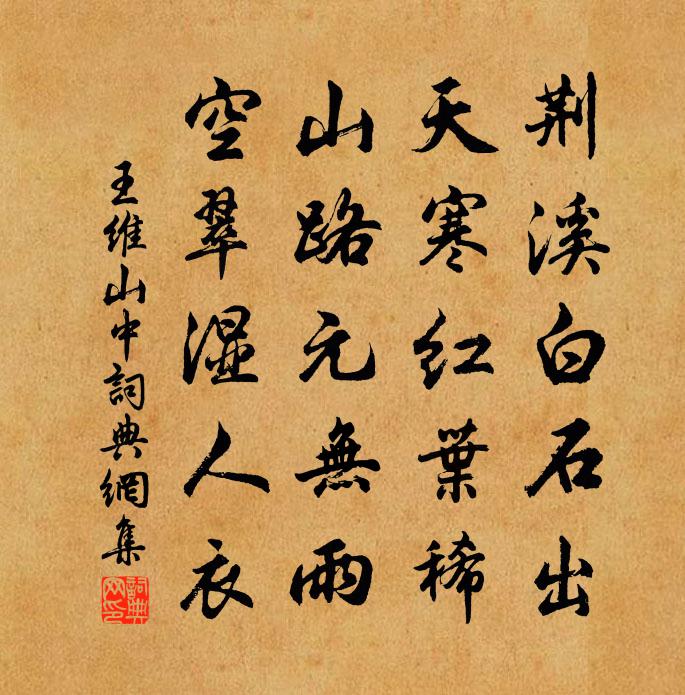 荆溪白石出
天寒红葉稀
山路元無雨
空翠濕人衣
王維山中詞典網集
詞典網印